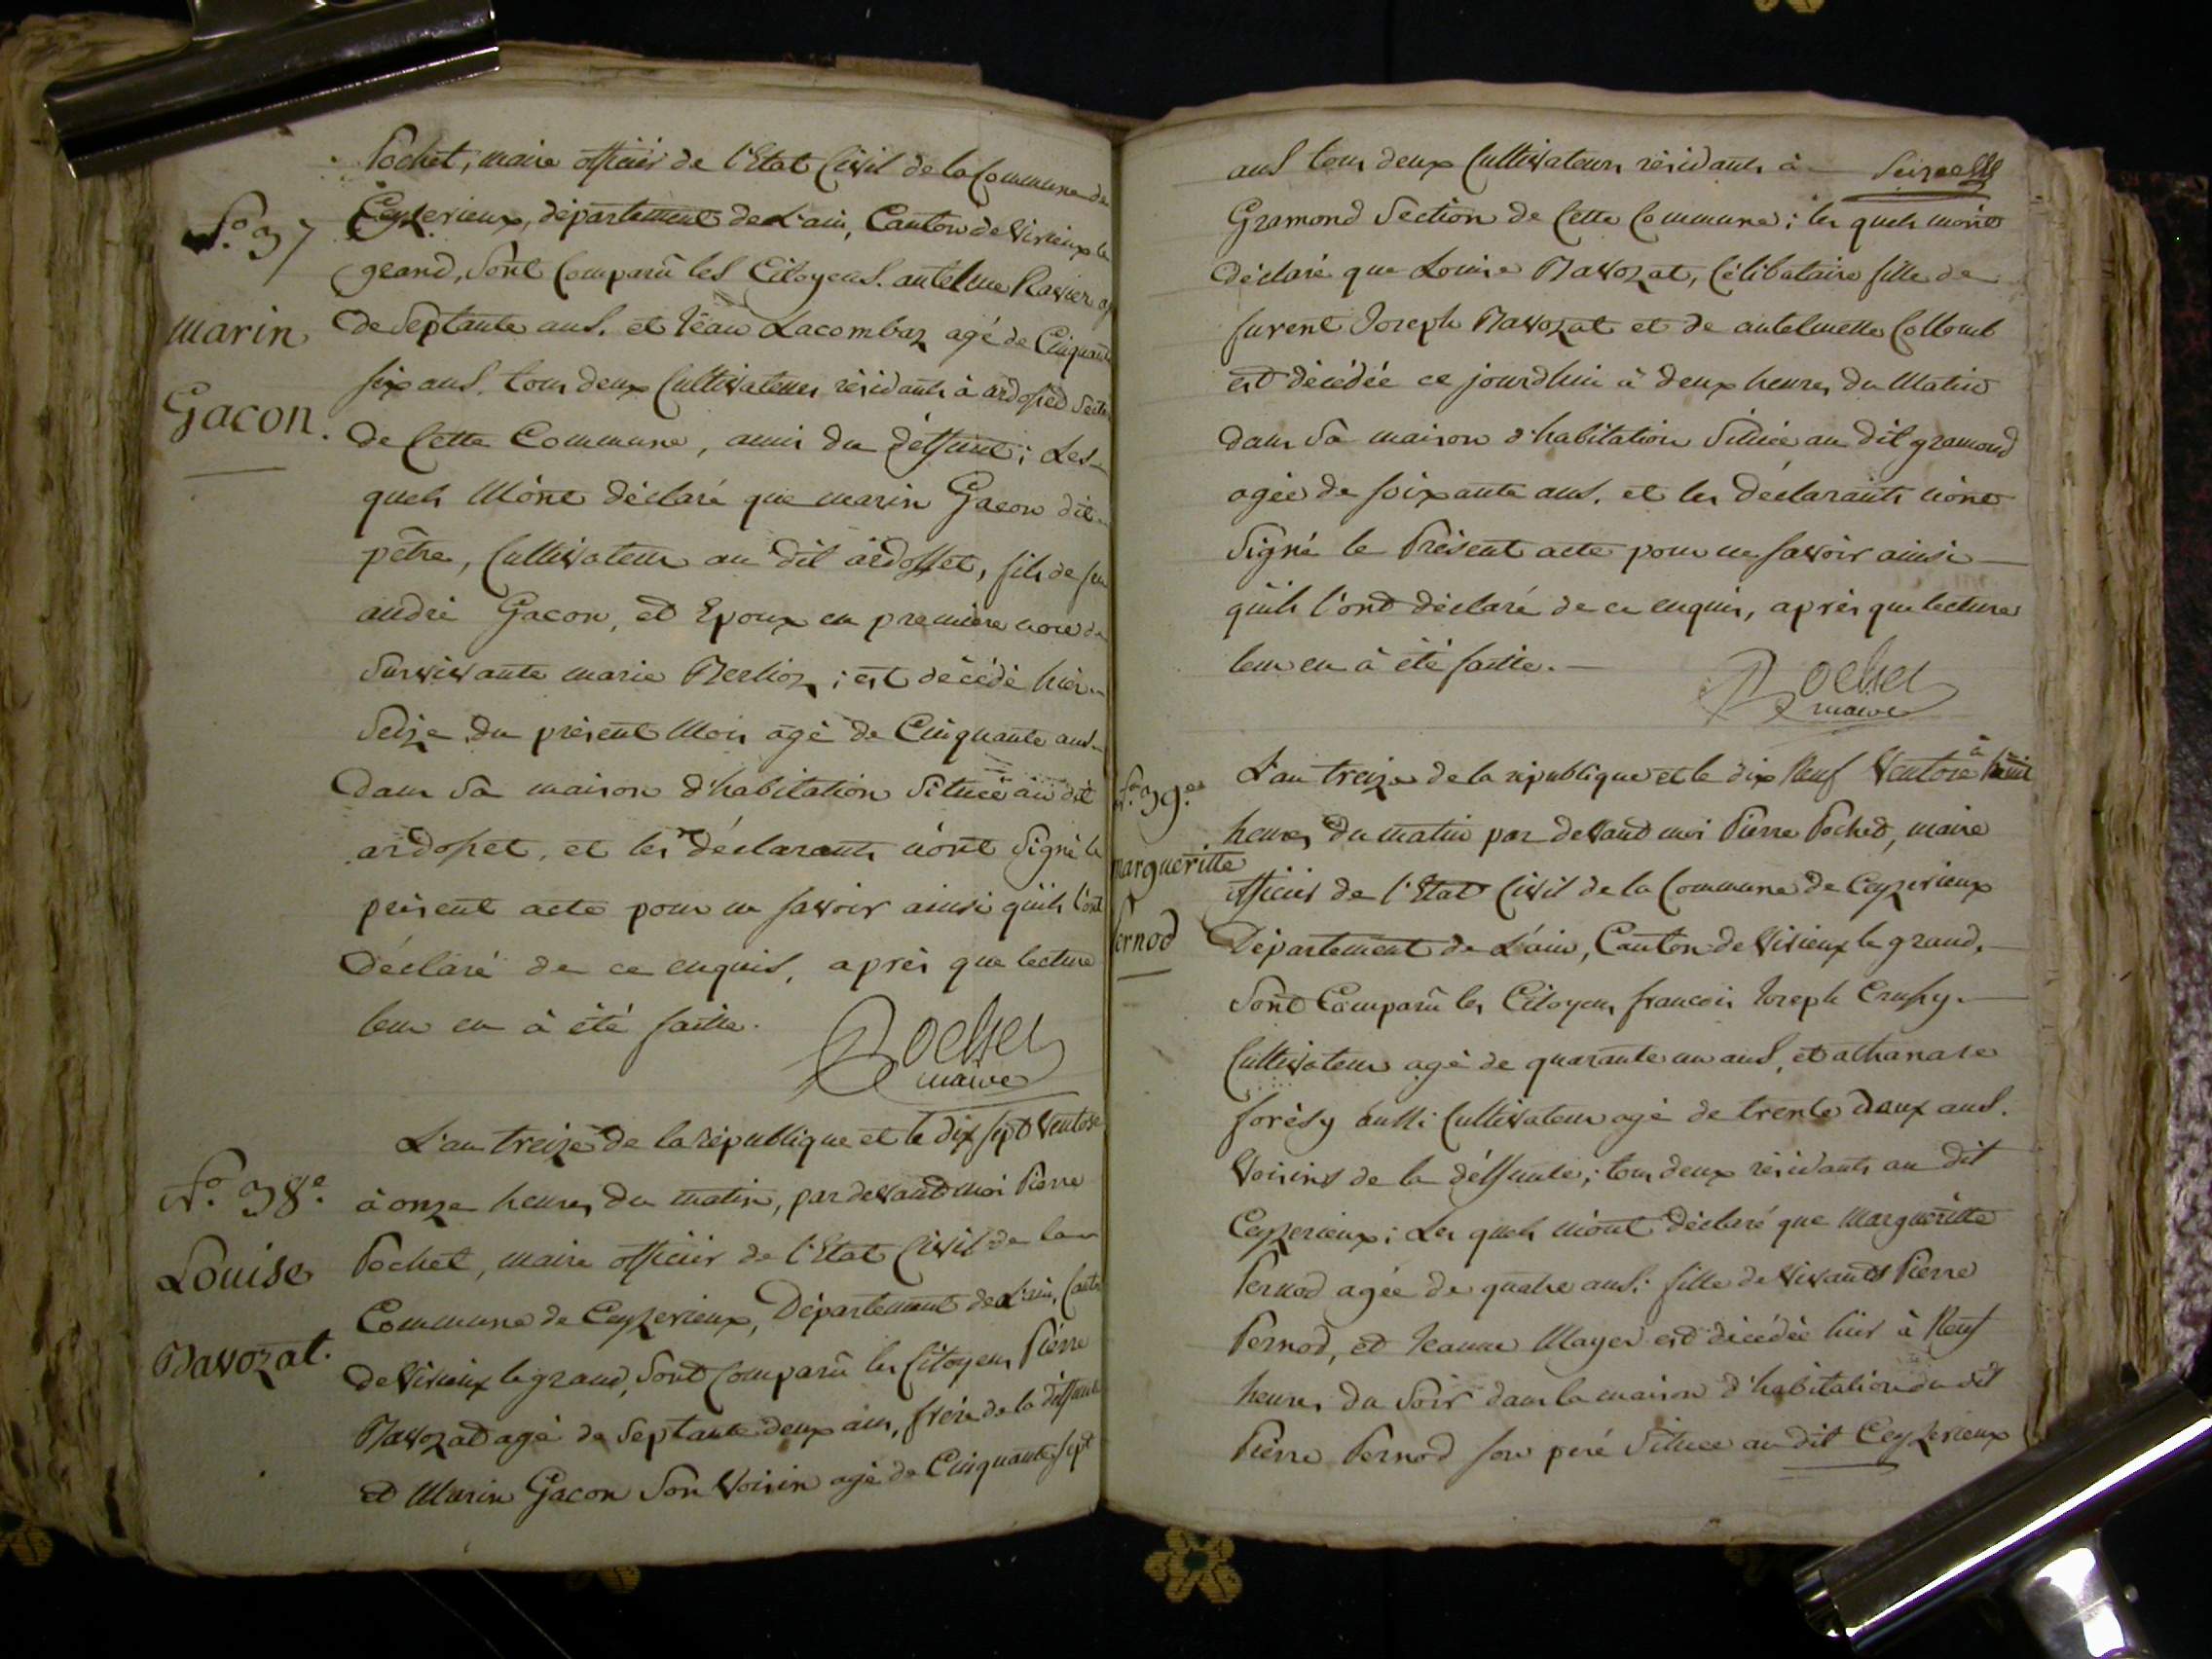 Pochet, maire officier de l'Etat Civil de la Commune de
N.o 37
Ceyzerieux, département de L'ain, Canton de Virieux le
grand, Sont Comparû les Citoyens. antelme Ravier agé
marin
de Septante ans. et Jean Lacombaz agé de Cinquante
Gacon.
six ans. tous deux Cultivateurs résidants à ardosset Section
de Cette Commune, amis du déffunt; Les-
quels m'ônt déclaré que marin Gacon dit
pêtre, Cultivateur au dit ardosset, fils de feu
andré Gacon, et Epoux en premiere noce de
Survivante marie Berlioz; est décédé hier
Seize du présent Mois agé de Cinquante ans
dans Sa maison d'habitation Située au dit
ardosset, et les déclarants n'ônt Signé le
présent acte pour ne savoir ainsi qu'ils l'ont
Déclaré de ce enquis, après que lecture
leur en à été faitte.
Pochet
maire
L'an treize de la république et le dix sept Ventose
N.o 38.e
à onze heures du matin, par devant moi Pierre
Louise
Pochet, maire officier de l'Etat Civil de la
Commune de Ceyzerieux, Département de L'ain, Canton
Navozat.
de Virieux le grand, Sont Comparû les Citoyens Pierre
Navozat agé de Septante deux ans, frère de la déffunte
et Marin Gacon Son Voisin agé de Cinquante sept
ans tous deux Cultivateurs résidants à
Gramond Section de Cette Commune; les quels mônt
déclaré que Louise Navozat, Célibataire fille de
furent Joseph Navozat et de antelmette Collomb
est décédée ce jourdhui à deux heures du Matin
dans Sa maison d'habitation Située au dit gramond
agée de soixante ans. et les déclarants n'ônt
Signé le Présent acte pour ne savoir ainsi
qu'ils l'ont déclaré de ce enquis, après que lecture
leur en à été faitte.
Pochet
maire
L'an treize de la république et le dix Neuf Ventose à huit
N.o 39.e
heures du matin par devant moi Pierre Pochet, maire
margueritte
officier de l'Etat Civil de la Commune de Ceyzerieux
Pernod
Département de L'ain, Canton de Virieux le grand,
Sont Comparû les Citoyens francois Joseph Crussy
Cultivateur agé de quarante un ans, et athanase
forésy aussi Cultivateur agé de trente deux ans.
Voisins de la déffunte; tous deux résidants au dit
Ceyzerieux; Les quels m'ont déclaré que Margueritte
Pernod agée de quatre ans: fille de Vivants Pierre
Pernod, et Jeanne Mayer est décédée hier à Neuf
heures du Soir dans la maison d'habitation du dit
Pierre Pernod son peré Située au dit Ceyzerieux